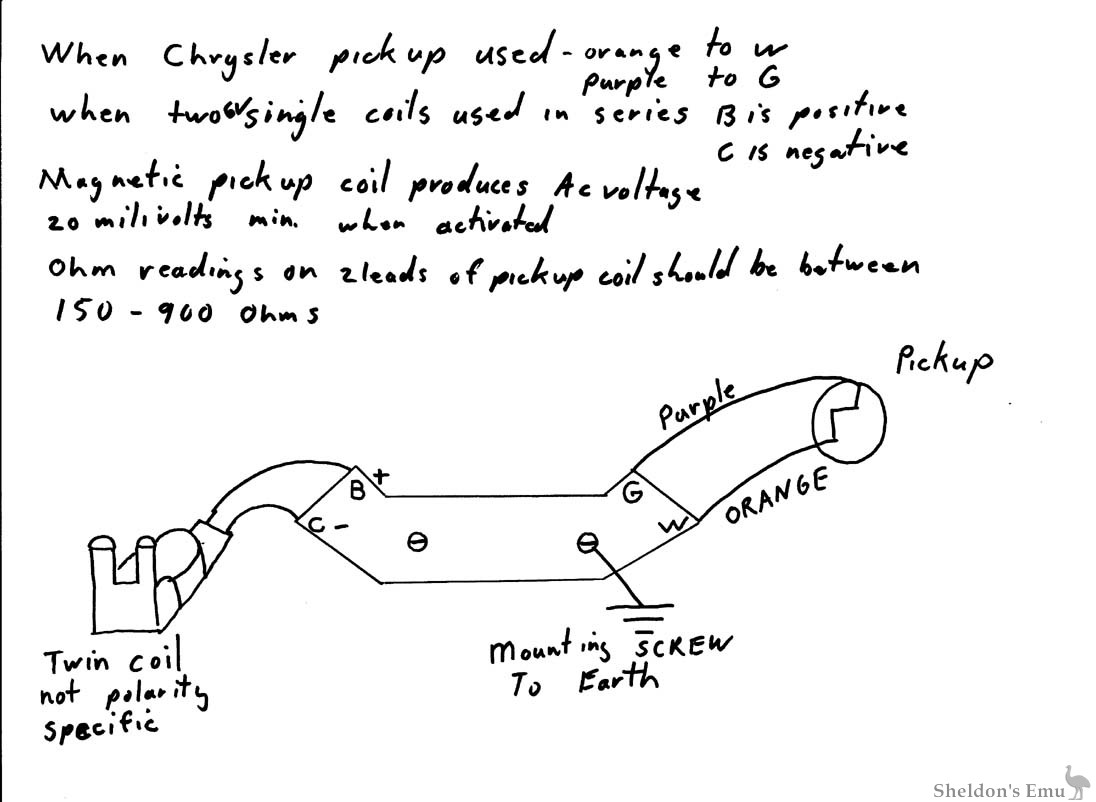 When Chrysler pickup used - orange to W
Purple to G
when two 6V single coils used in series B is positive
C is negative
Magnetic pickup coil produces Ac voltage
20 milivolts min. when activated
Ohm readings on 2 leads of pickup coil should be between
150 - 900 Ohms
Pickup
Purple
B +
G
C -
W
ORANGE
Mounting SCREW
To Earth
Twin coil
not polarity
specific
Sheldon's Emu